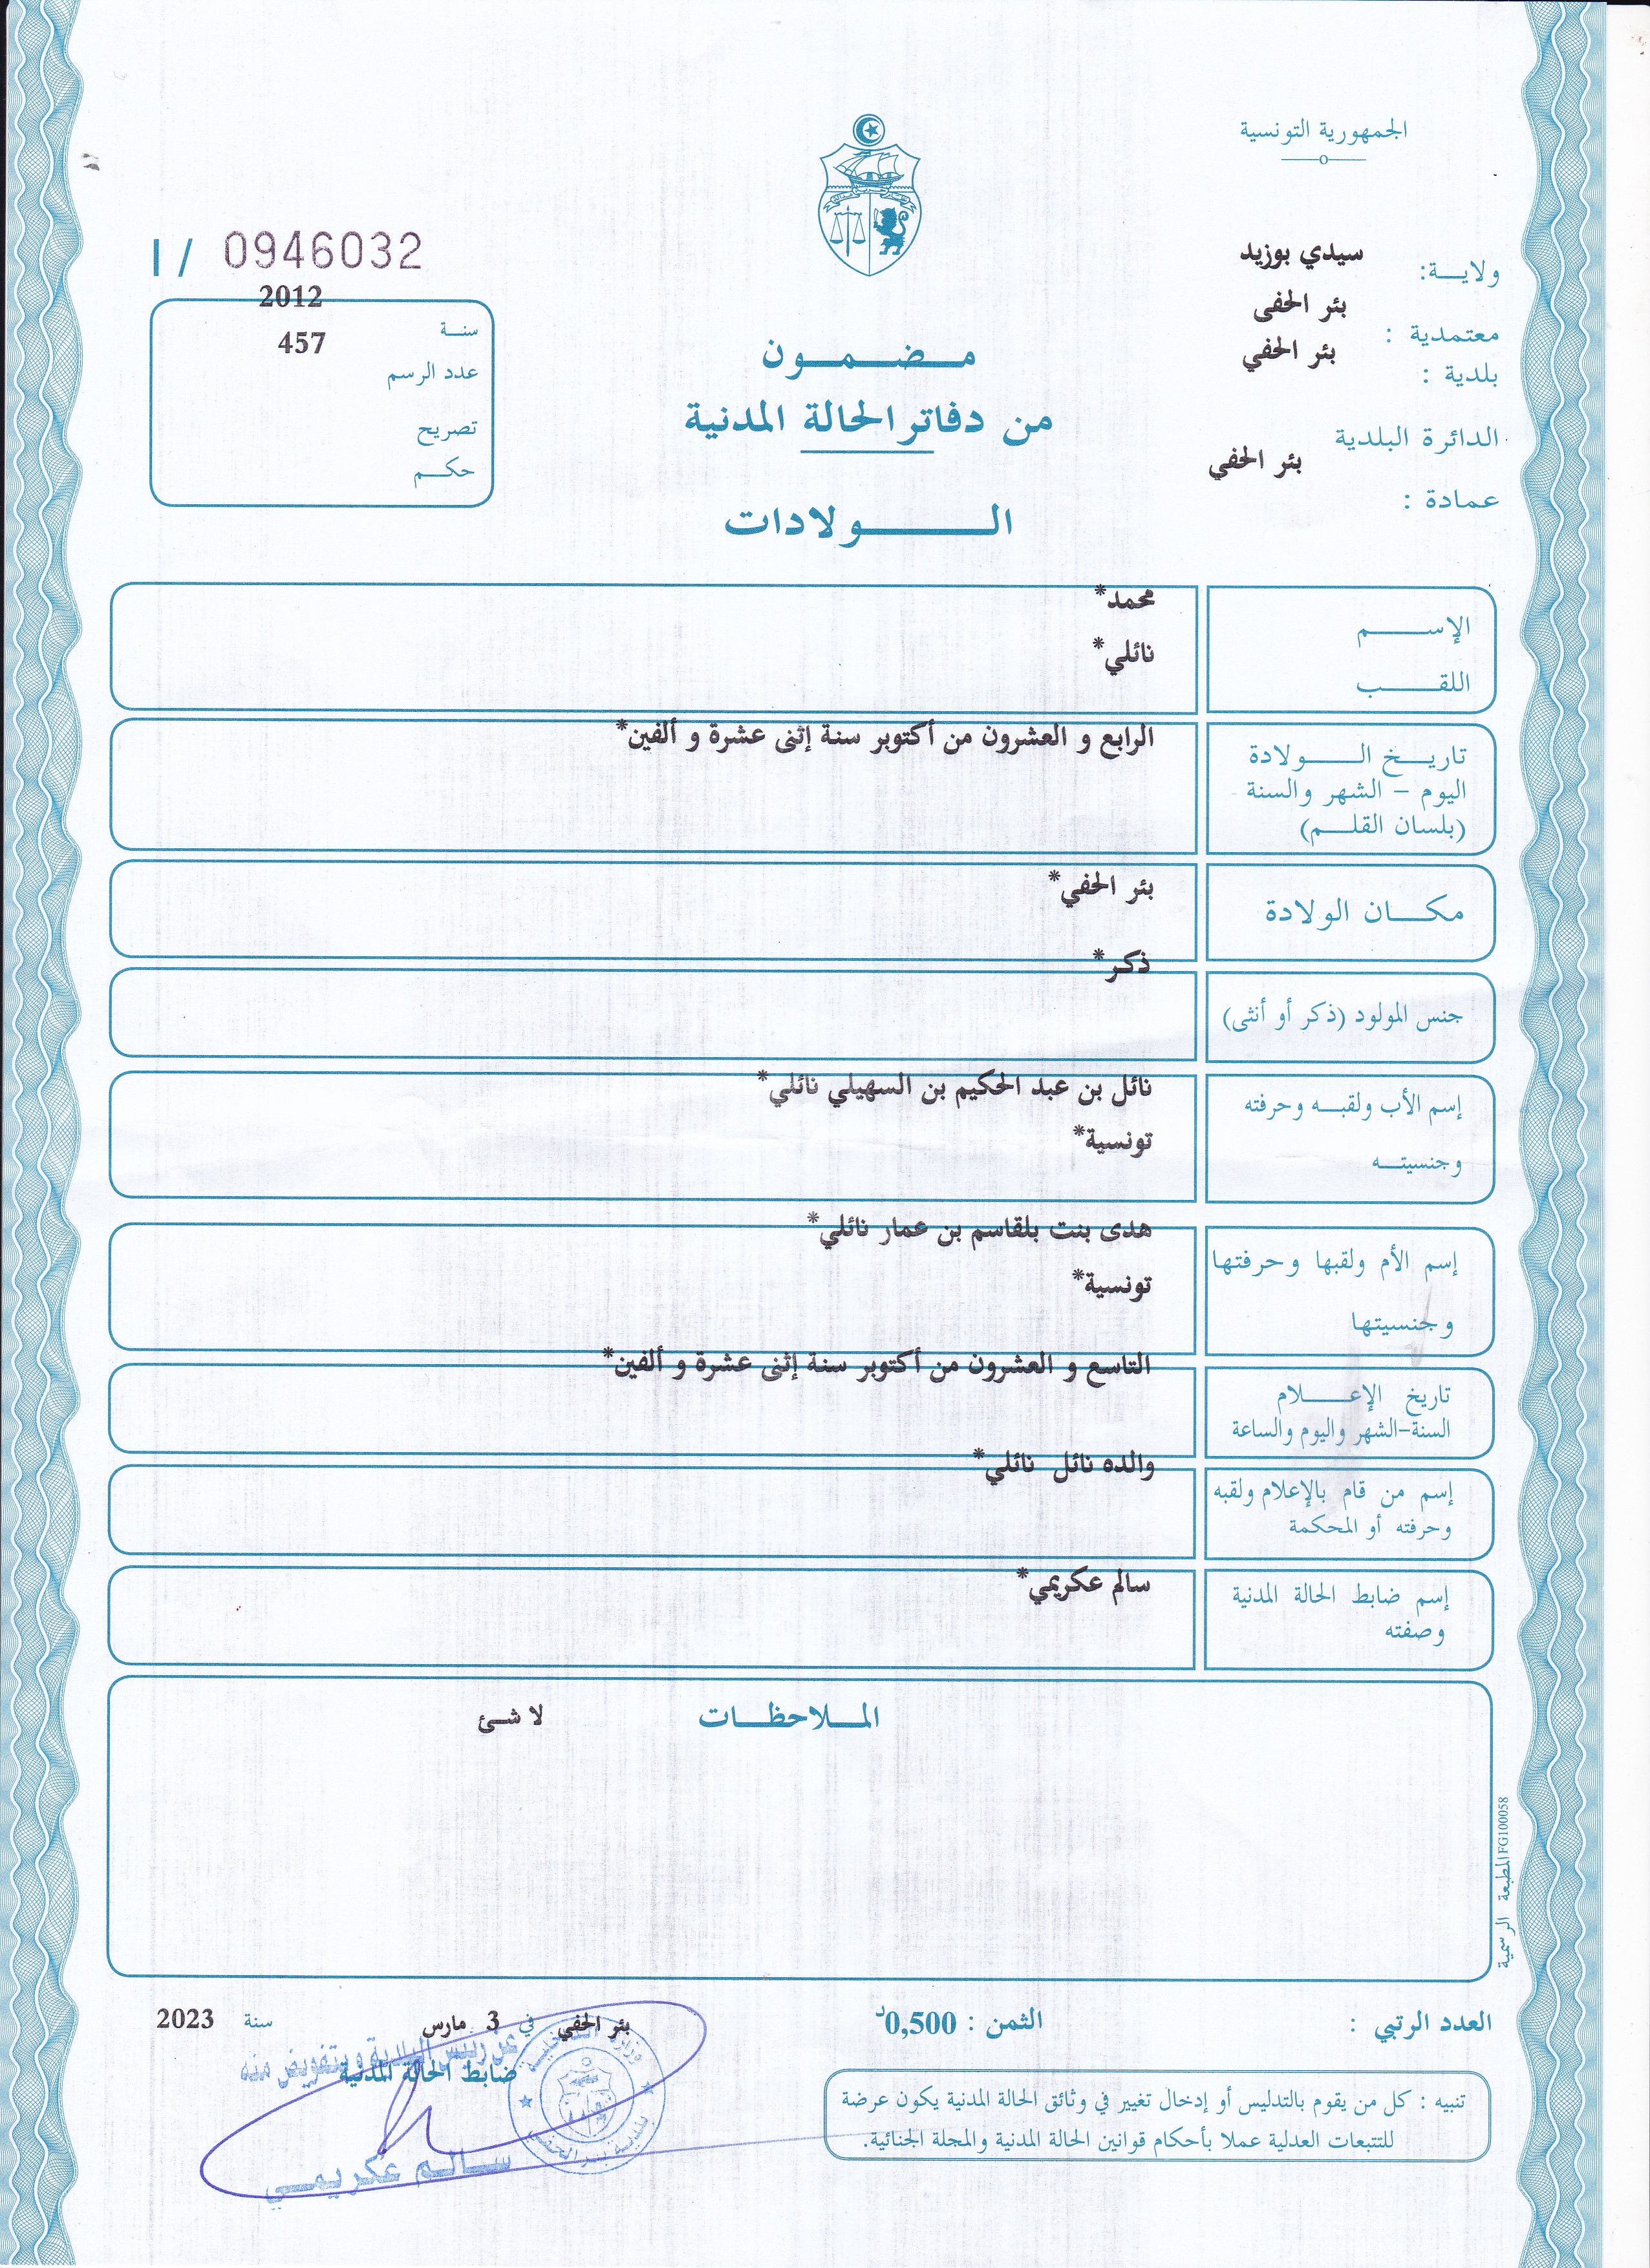 الجمهورية التونسية
ولايـــة: سيدي بوزيد
معتمدية : بئر الحفى
بلدية : بئر الحفي
الدائرة البلدية
بئر الحفي
عمادة :
I / 0946032
سنــة 2012
عدد الرسم 457
تصريح
حكــم
مــضــمــون
من دفاتر الحالة المدنية
الـــولادات
الإســـــم محمد*
اللقـــــب نائلي*
تاريــخ الــــولادة
اليوم – الشهر والسنة
(بلسان القلــم)
الرابع و العشرون من أكتوبر سنة إثنى عشرة و ألفين*
مكـــان الولادة بئر الحفي*
جنس المولود (ذكر أو أنثى) ذكر*
إسم الأب ولقبــه وحرفته نائل بن عبد الحكيم بن السهيلي نائلي*
وجنسيتــه تونسية*
إسم الأم ولقبها وحرفتها هدى بنت بلقاسم بن عمار نائلي*
وجنسيتها تونسية*
تاريخ الإعـــــلام
السنة-الشهر واليوم والساعة
التاسع و العشرون من أكتوبر سنة إثنى عشرة و ألفين*
إسم من قام بالإعلام ولقبه
وحرفته أو المحكمة
والده نائل نائلي*
إسم ضابط الحالة المدنية
وصفته
سالم عكريمي*
المــلاحظــات لا شــئ
المطبعة الرسمية FG100058
العدد الرتبي :
الثمن : 0,500د
بئر الحفي في 3 مارس سنة 2023
ضابط الحالة المدنية
عن رئيس البلدية و بتفويض منه
ســالــم عكريمــي
وزارة الداخلية
بلدية بئر الحفي
تنبيه : كل من يقوم بالتدليس أو إدخال تغيير في وثائق الحالة المدنية يكون عرضة
للتتبعات العدلية عملا بأحكام قوانين الحالة المدنية والمجلة الجنائية.